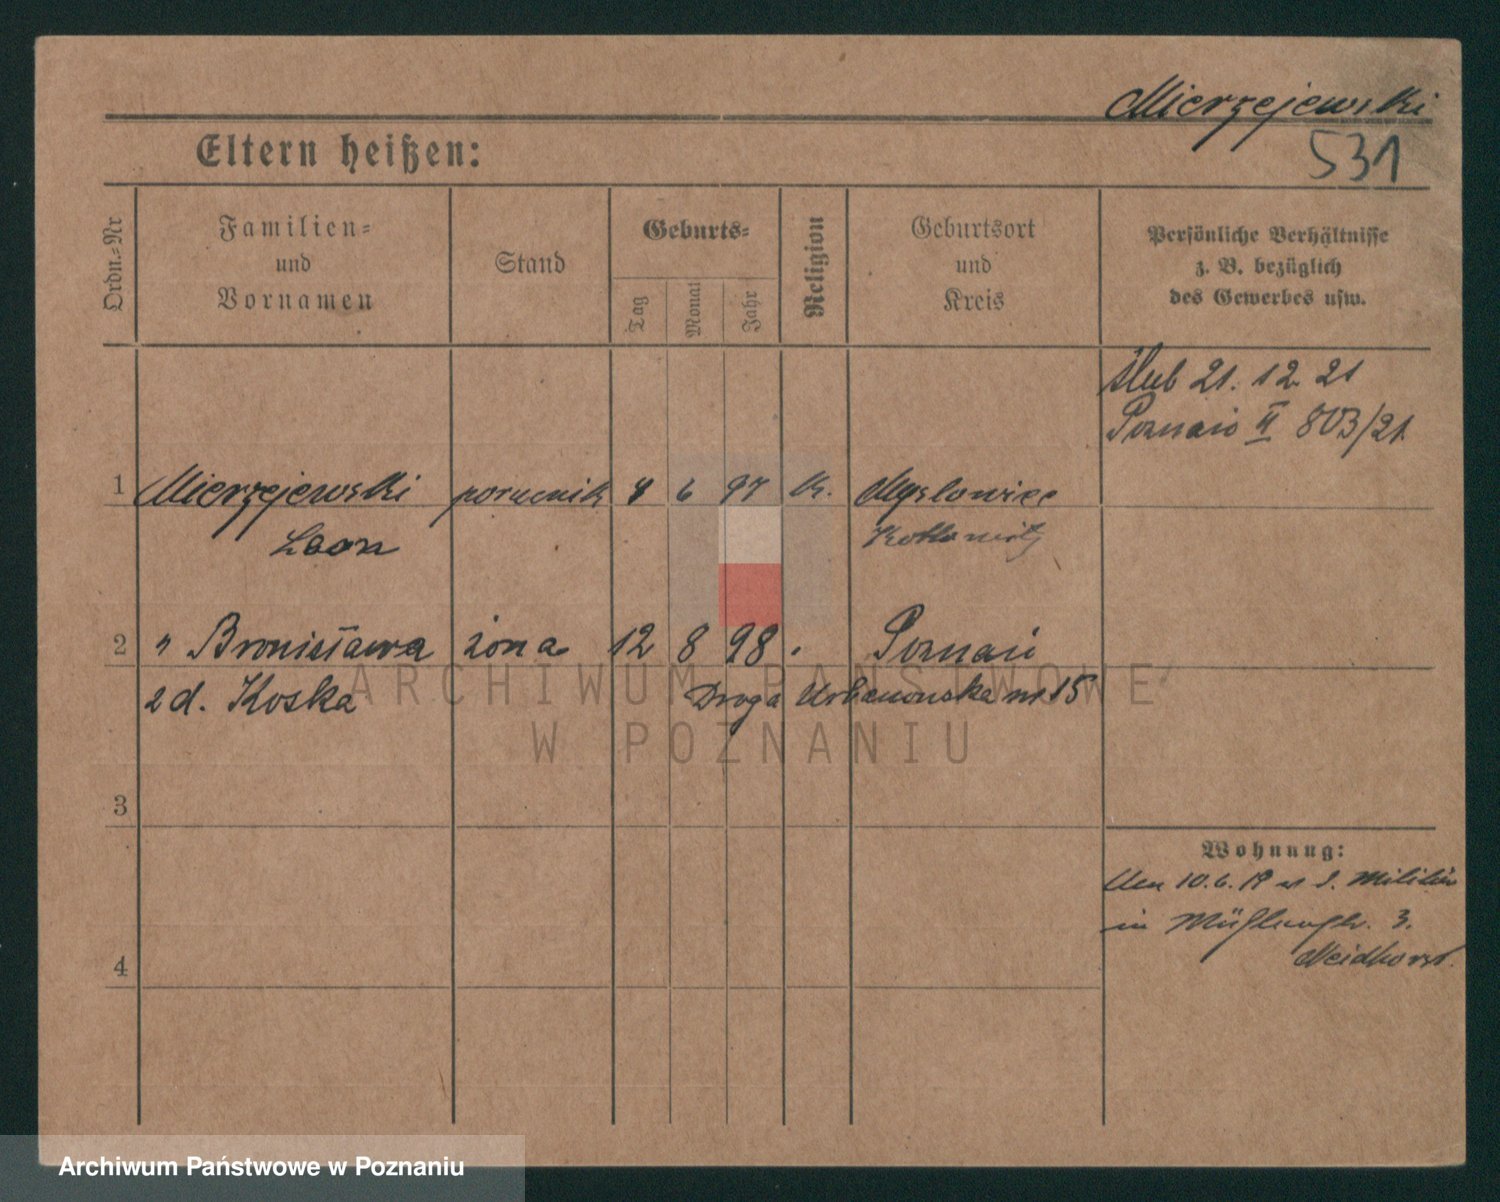 Mierzejewski
Eltern heißen:
531
Ordn.=Nr
Familien=
und
Vornamen
Stand
Geburts=
Tag
Monat
Jahr
Religion
Geburtsort
und
Kreis
Persönliche Verhältnisse
z. B. bezüglich
des Gewerbes usw.
ślub 21. 12. 21
Poznań II 803/21.
1 Mierzejewski porucznik 4 6 97 K. Mysłowice
Leon Kattowitz
2 " Bronisława żona 12 8 98 . Poznań
zd. Koska Droga Urbanowska nr 15
ARCHIWUM PAŃSTWOWE
W POZNANIU
3
Wohnung:
10. 6. 19 Militär
in 3.
4
Archiwum Państwowe w Poznaniu